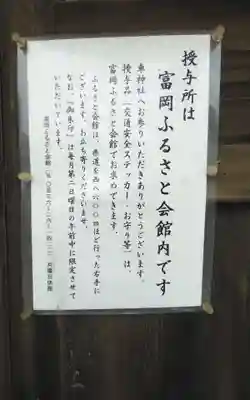 授与所は
富岡ふるさと会館内です
車神社へお参りいただきありがとうございます。
授与品（交通安全ステッカー・お守り等）は、
富岡ふるさと会館でお求めできます。
ふるさと会館は、県道を西へ六〇〇ｍほど行った右手に
ございます。お立ち寄りくださいませ。
なお、『御朱印』は毎月第二日曜日の午前中に限定させて
いただいています。
富岡ふるさと会館
月曜日休館